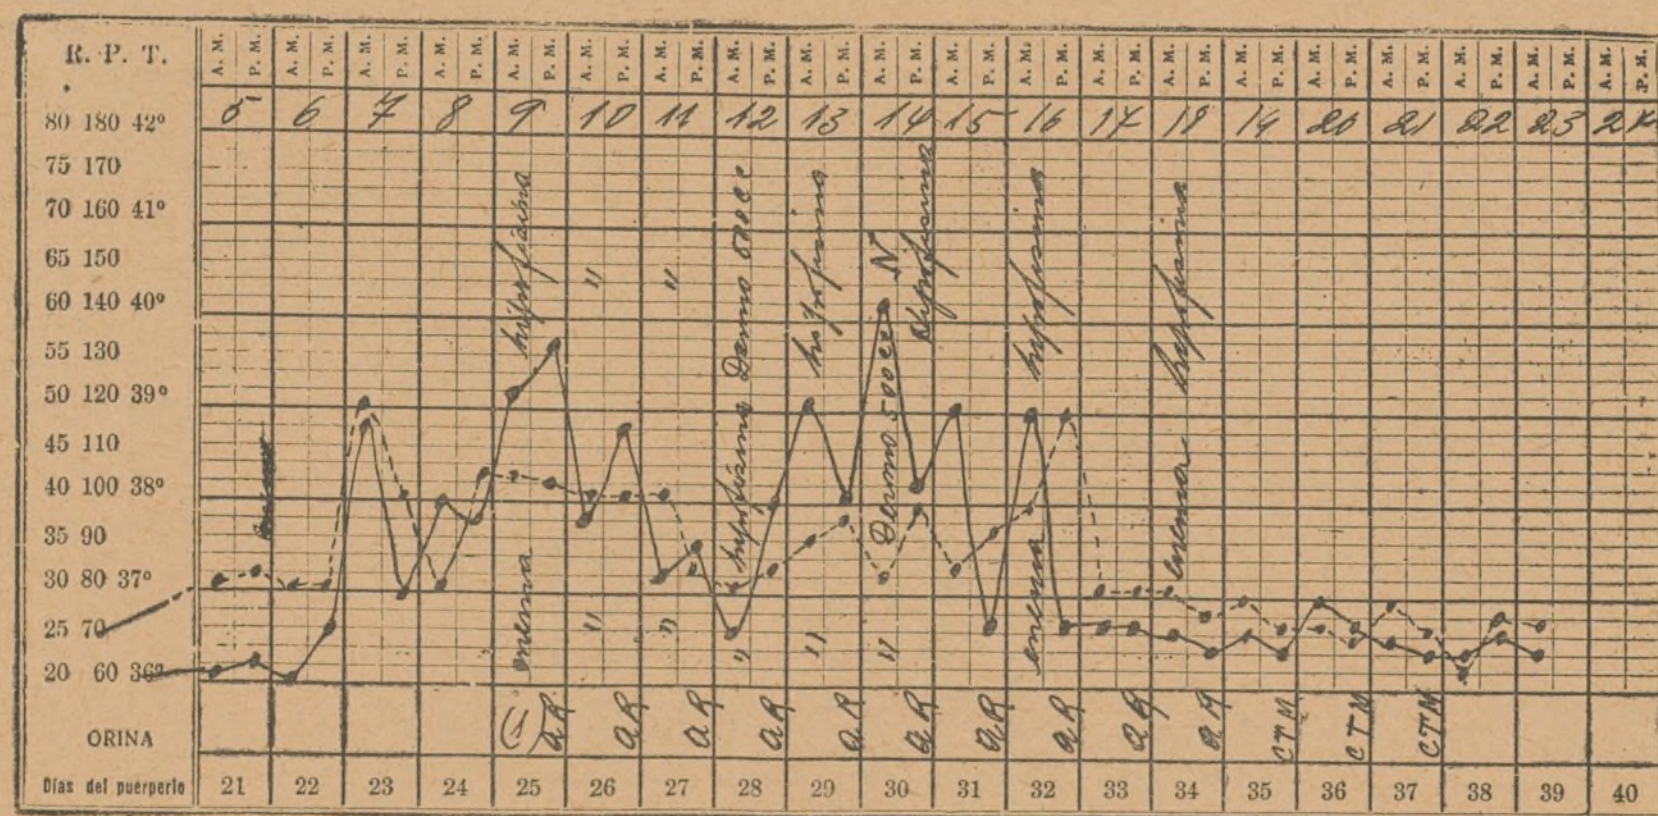 R. P. T.
A. M. P. M. A. M. P. M. A. M. P. M. A. M. P. M. A. M. P. M. A. M. P. M. A. M. P. M. A. M. P. M. A. M. P. M. A. M. P. M. A. M. P. M. A. M. P. M. A. M. P. M. A. M. P. M. A. M. P. M. A. M. P. M. A. M. P. M. A. M. P. M. A. M. P. M. A. M. P. M.
5 6 7 8 9 10 11 12 13 14 15 16 17 18 19 20 21 22 23 24
80 180 42º
75 170
70 160 41º
65 150
60 140 40º
55 130
50 120 39º
45 110
40 100 38º
35 90
30 80 37º
25 70
20 60 36º
hipofisina
" "
hipofisina Dermo 500 cc
hipofisina
Dermo 500 cc N
hipofisina
hipofisina
hipofisina
enema
" " " " "
enema
enema
ORINA
(1) a R a R a R a R a R a R a R a R a R a R C T M C T M C T M
Días del puerperio 21 22 23 24 25 26 27 28 29 30 31 32 33 34 35 36 37 38 39 40